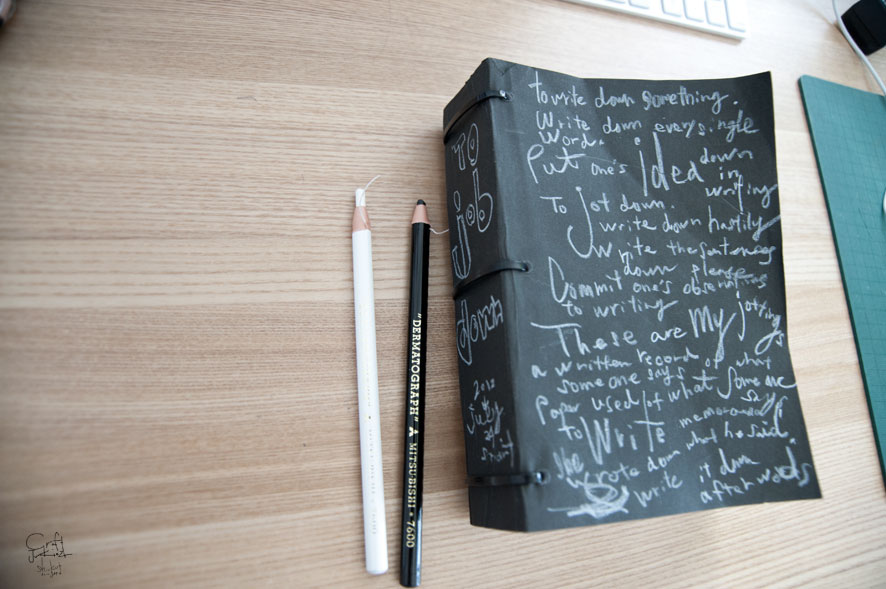 to write down something.
Write down every single
word.
Put one's Idea down
in
writing
To Jot down.
write down hastily
write the sentences
down please
Commit one's observations
to writing
These are My jottings
a written record of what
someone says
Paper used of what Someone
says
to Write memorandum
He wrote down what he said.
write it down
afterwords
TO
job
down
2010
July
start
"DERMATOGRAPH" MITSUBISHI • 7600
Craft